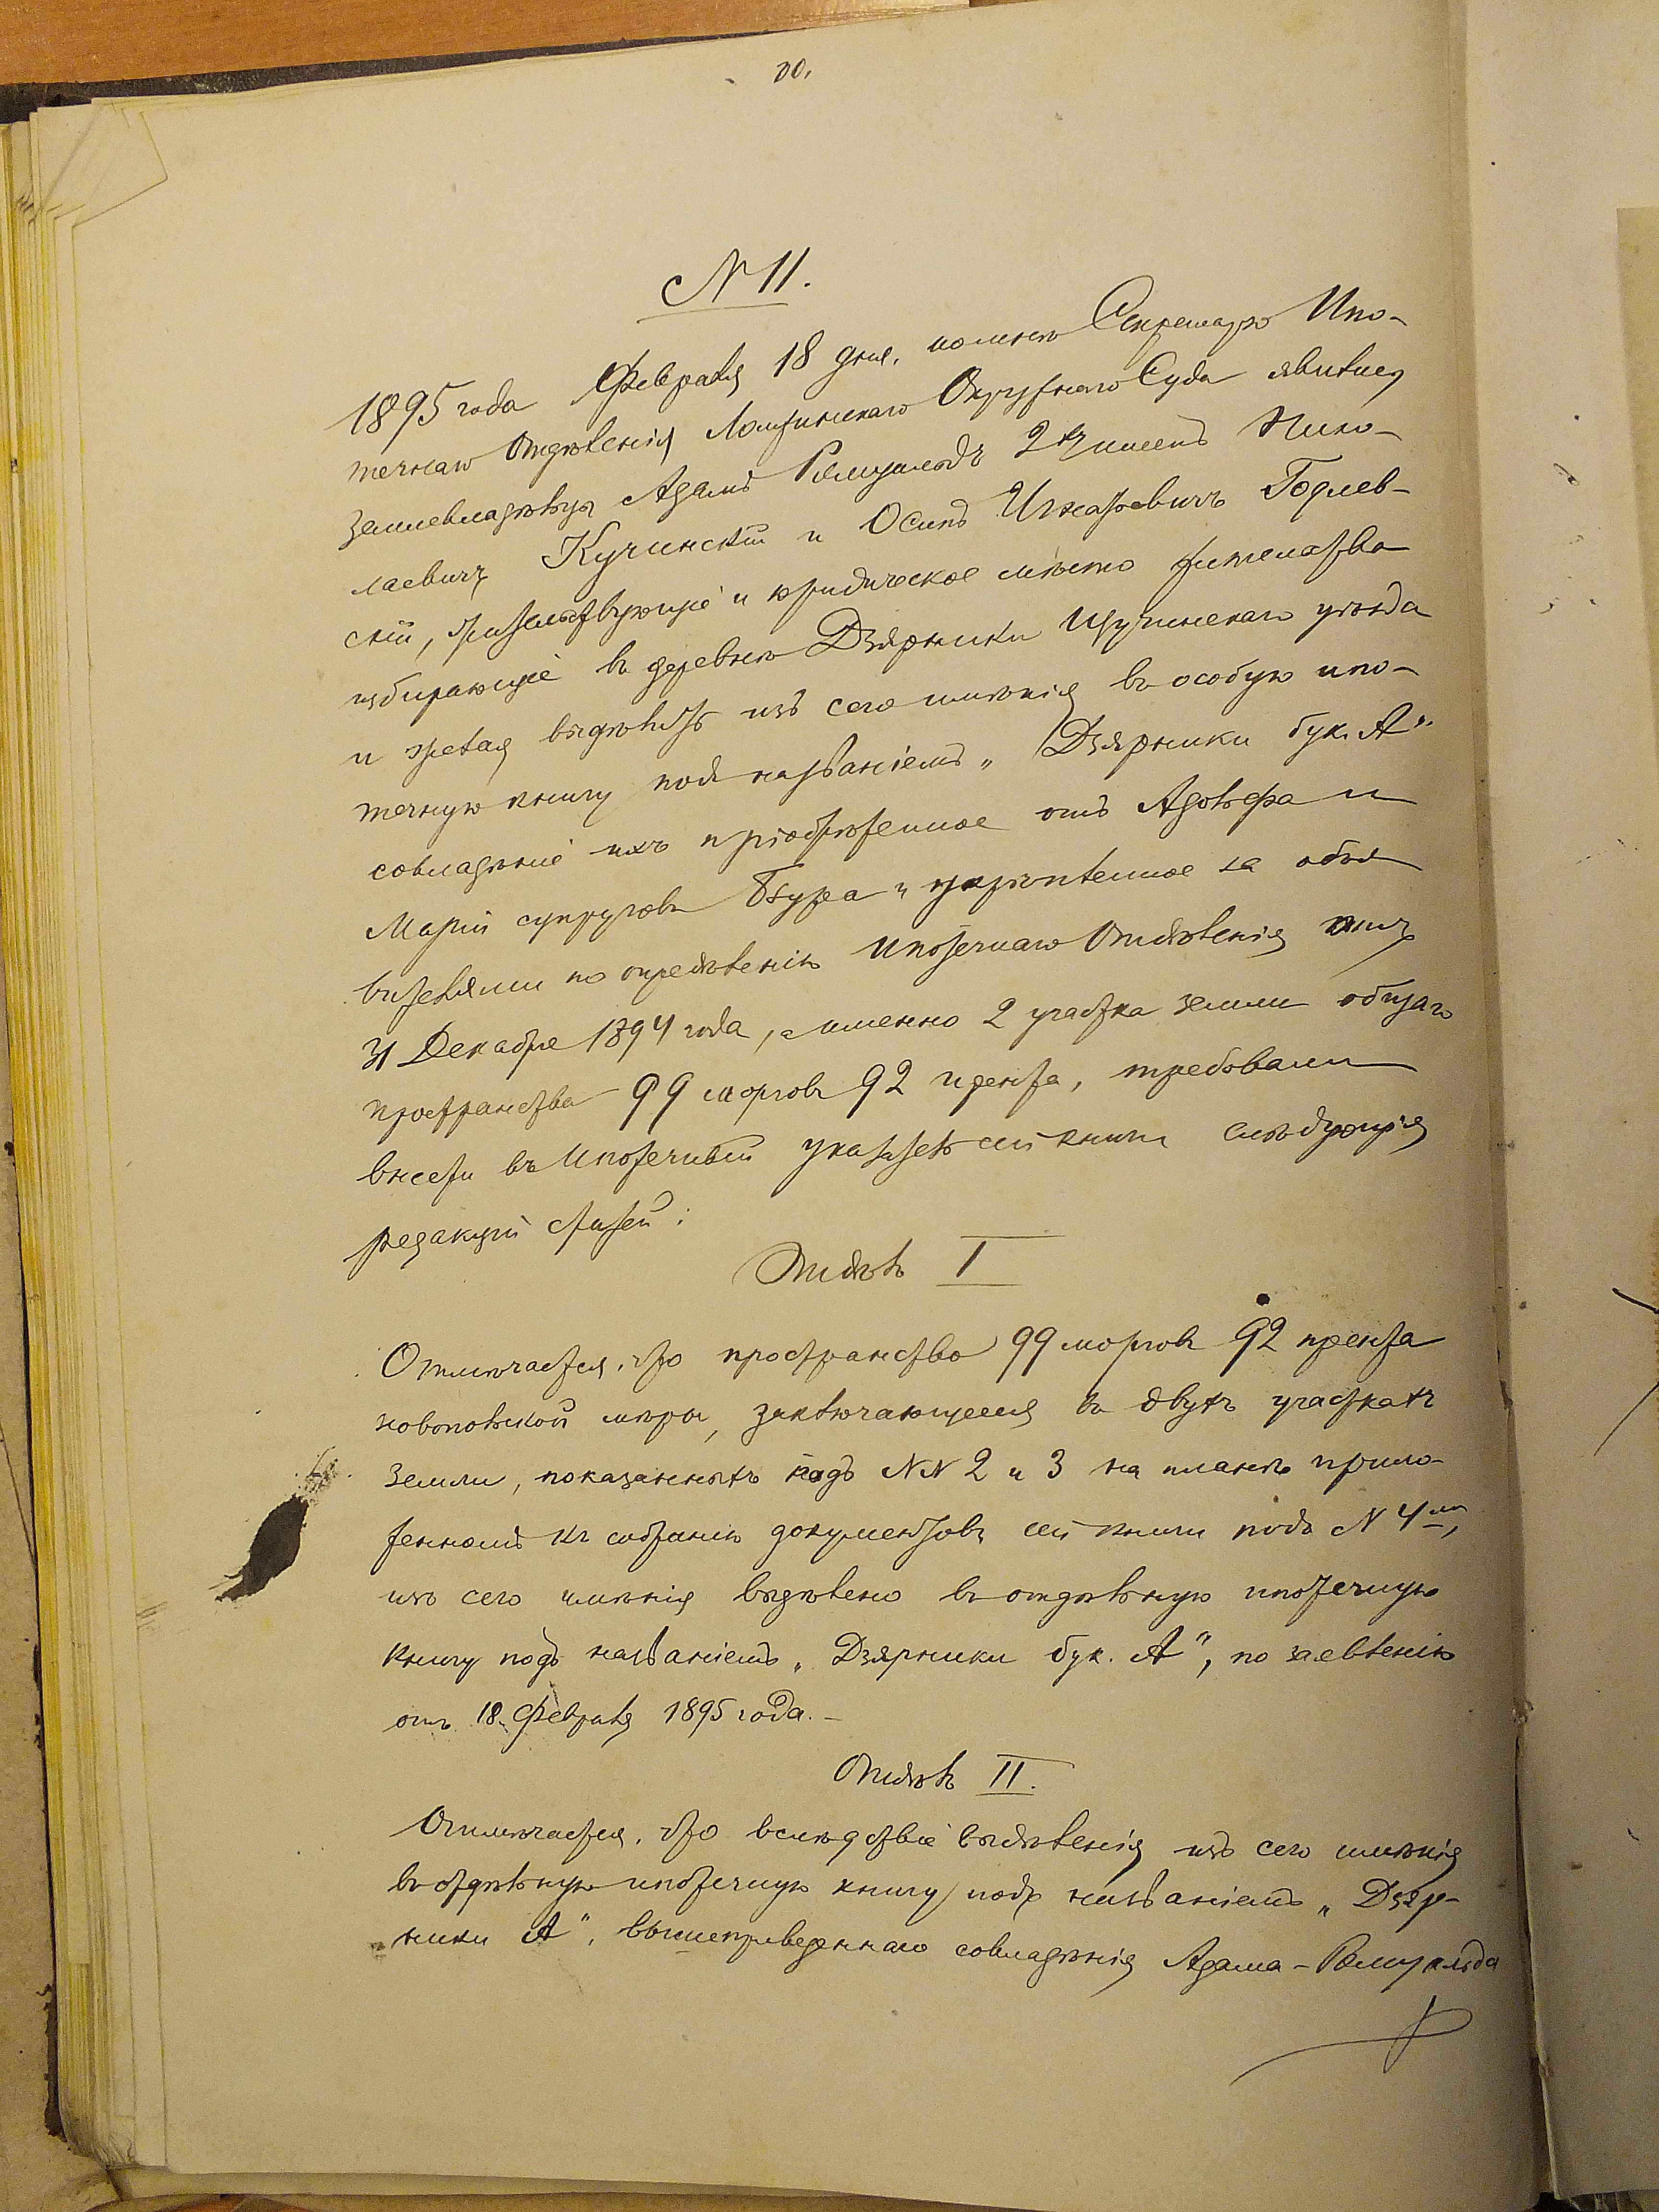 № 11.
1895 года Февраля 18 дня, комнѣ Секретарю Ипо-
течнаго Отдѣленія Ломжинскаго Окружнаго Суда явились
землевладѣльцы Адамъ Ромуальдъ 2хъ именъ Нико-
лаевичъ Кучинскій и Осипъ Игнатьевичъ Годлев-
скій, жительствующіе и юридическое мѣсто жительства
избирающіе въ деревнѣ Дзярники Щучинскаго уѣзда
и желая выдѣлить изъ сего имѣнія въ особую ипо-
течную книгу подъ названіемъ „Дзярники бук. А"
совладѣніе ихъ пріобрѣтенное отъ Адольфа и
Маріи супруговъ Бзура и укрѣпленное за объя-
вителями по опредѣленію Ипотечнаго Отдѣленія отъ
31 Декабря 1894 года, а именно 2 участка земли общаго
пространства 99 морговъ 92 прента, требовали
внести въ Ипотечный указатель сей книги слѣдующія
редакціи статей:
Отдѣлъ I
Отмѣчается, что пространство 99 морговъ 92 прента
новопольской мѣры, заключающееся въ двухъ участкахъ
земли, показанныхъ подъ NN 2 и 3 на планѣ прило-
женномъ къ собранію документовъ сей книги подъ № 4мъ,
изъ сего имѣнія выдѣлено въ отдѣльную ипотечную
книгу подъ названіемъ „Дзярники бук. А", по заявленію
отъ 18 Февраля 1895 года. –
Отдѣлъ II.
Отмѣчается, что вслѣдствіе выдѣленія изъ сего имѣнія
въ отдѣльную ипотечную книгу подъ названіемъ „Дзяр-
ники А", вышеприведеннаго совладѣнія Адама-Ромуальда